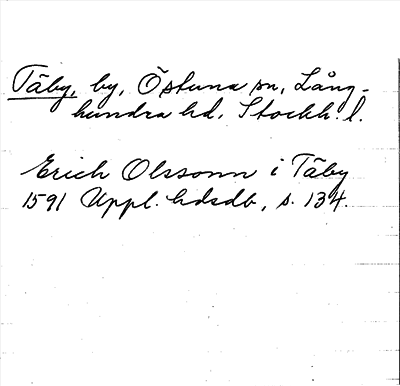 Tãby, by, Õstuna sn, Lång-
hundra hd, Stockh. l.
Erich Olssonn i Tãby
1591 Uppl. hdsdb, s. 134.